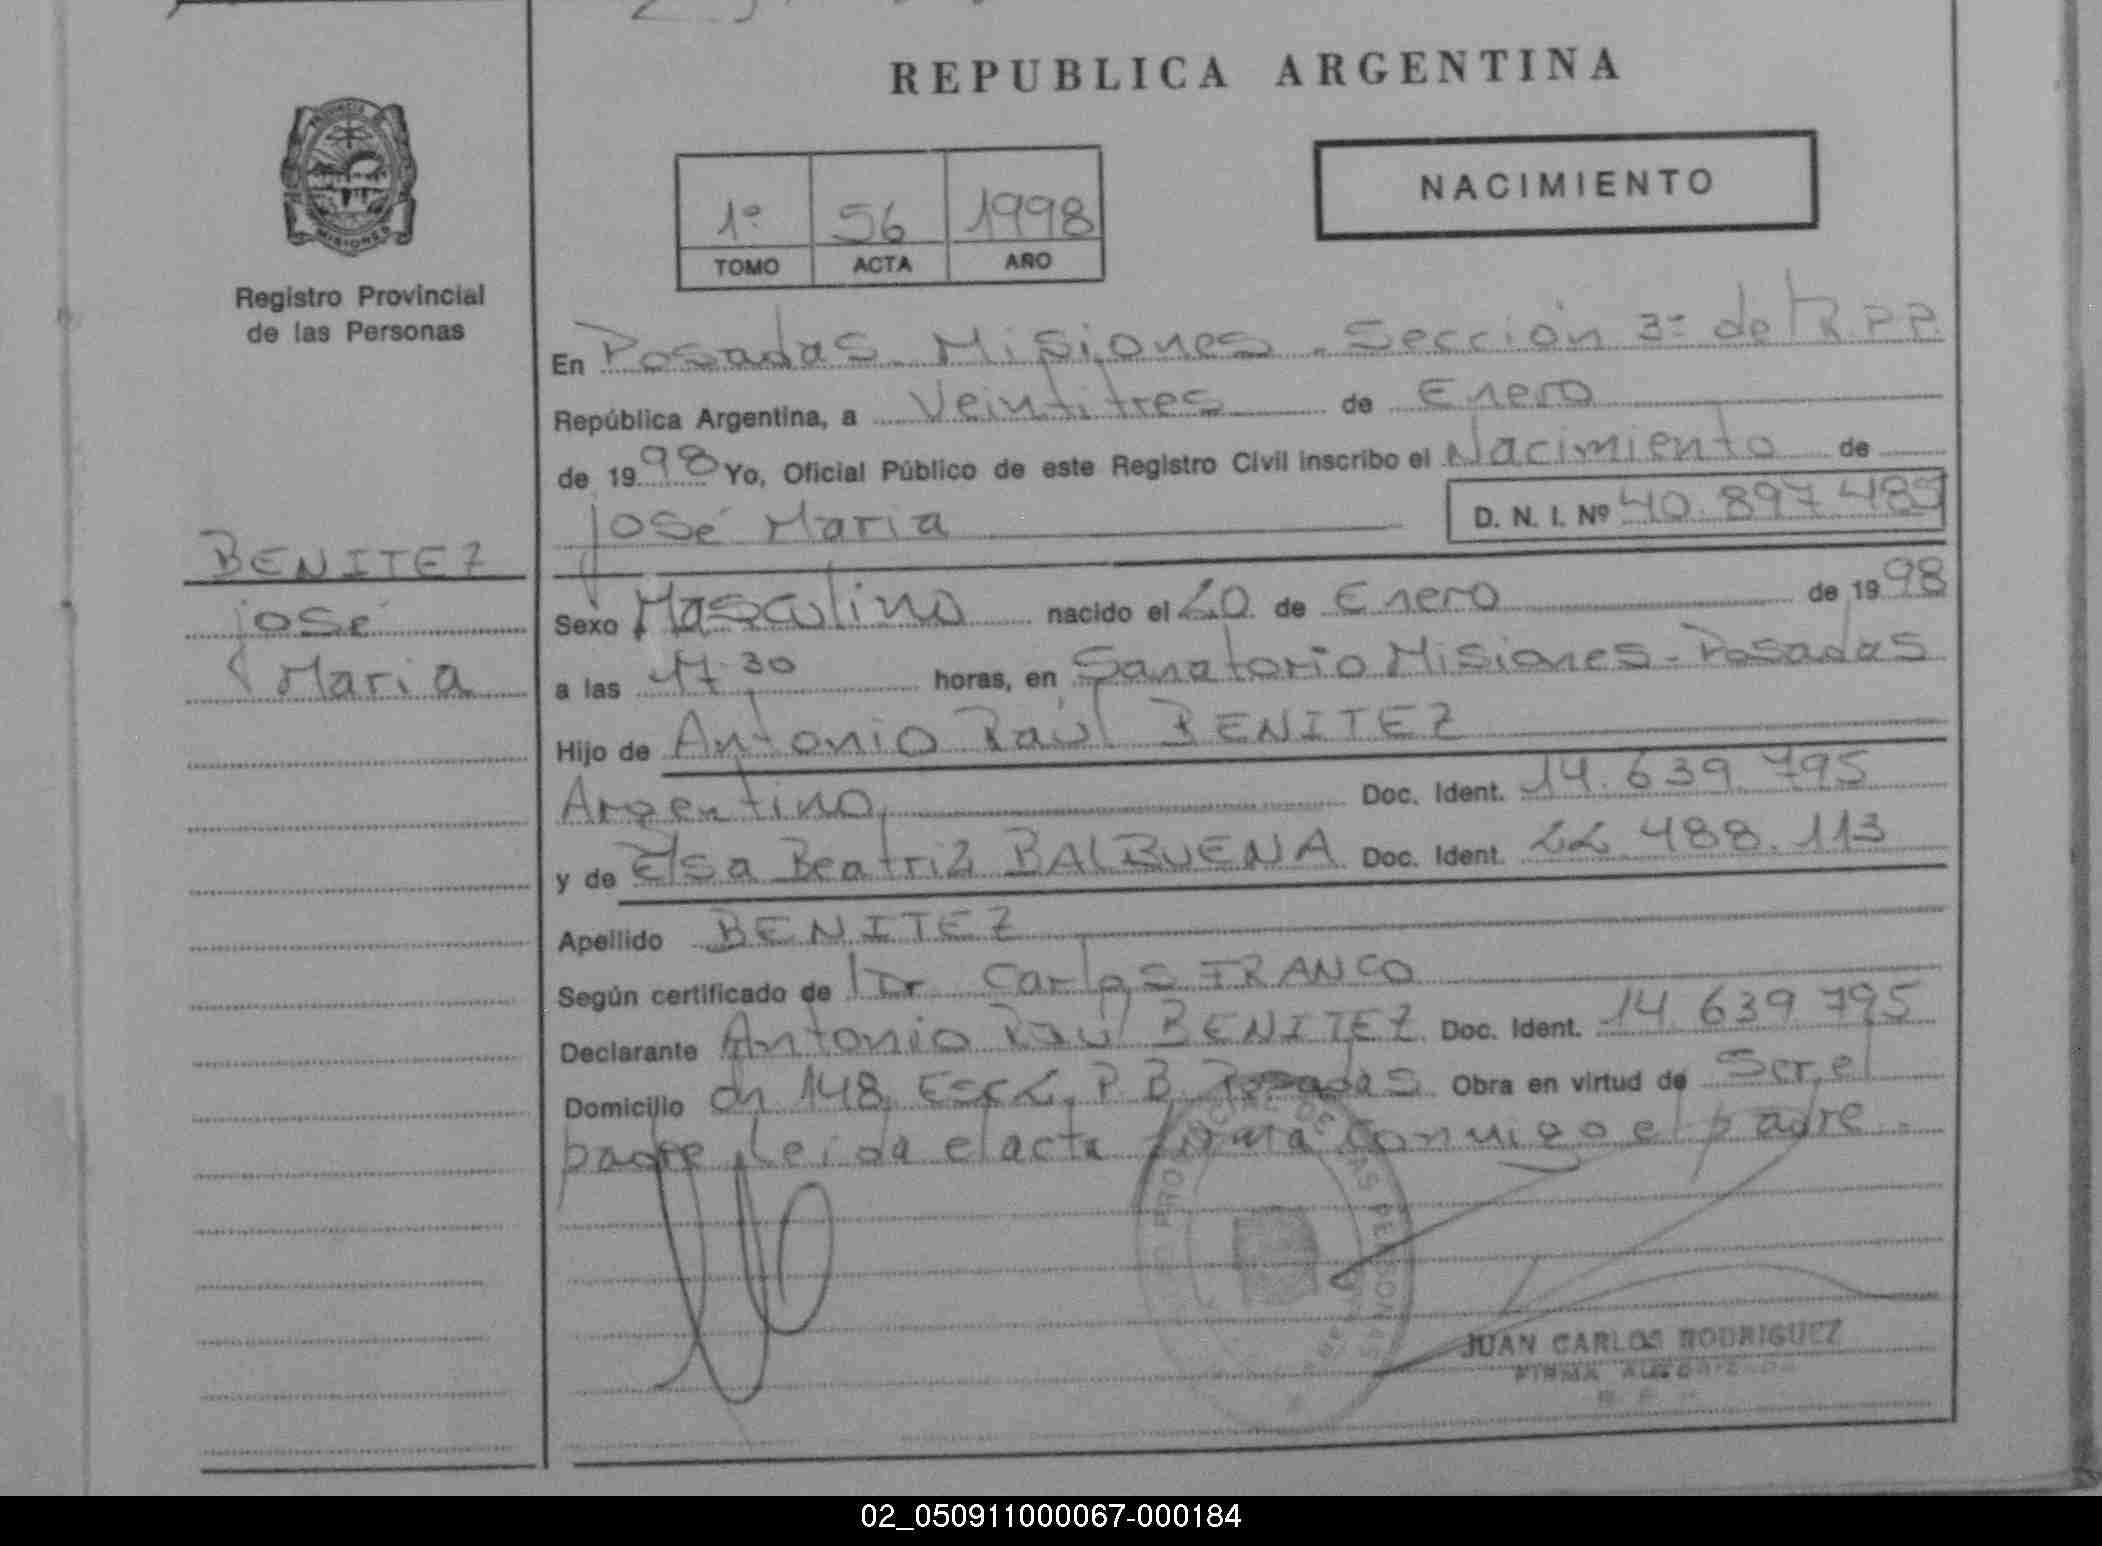 REPUBLICA ARGENTINA
PROVINCIA DE
MISIONES
Registro Provincial
de las Personas
1º 56 1998
TOMO ACTA AÑO
NACIMIENTO
En Posadas Misiones. Sección 3º del R.P.P.
República Argentina, a Veintitres de Enero
de 1998 Yo, Oficial Público de este Registro Civil inscribo el Nacimiento de
José Maria D. N. I. Nº 40.897.489
BENITEZ
José
Maria
Sexo Masculino nacido el 20 de Enero de 1998
a las 17.30 horas, en Sanatorio Misiones - Posadas
Hijo de Antonio Raúl BENITEZ
Argentino Doc. Ident. 14.639.795
y de Elsa Beatriz BALBUENA Doc. Ident. 22.488.113
Apellido BENITEZ
Según certificado de Dr Carlos FRANCO
Declarante Antonio Raúl BENITEZ Doc. Ident. 14.639.795
Domicilio Ch 148. Esc 2. P. B. Posadas Obra en virtud de Ser el
padre Leída el acta firma conmigo el padre.
JUAN CARLOS RODRIGUEZ
FIRMA AUTORIZADA
02_050911000067-000184